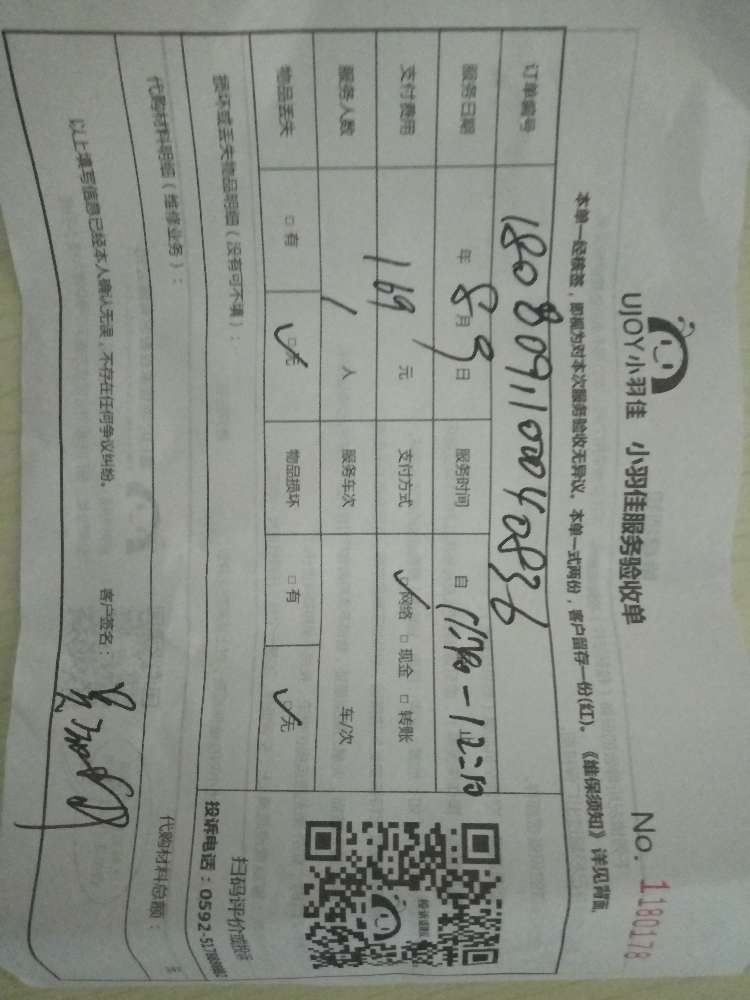 UJOY小羽佳 小羽佳服务验收单 No. 1180178
本单一经核签，即视为对本次服务验收无异议。本单一式两份，客户留存一份(红)。《维保须知》详见背面
订单编号 18080911000402836
服务日期 年 8 月 9 日 服务时间 自
支付费用 169 元 支付方式 ☑网络 □现金 □转账
服务人数 1 人 服务车次 车/次
物品丢失 □有 ☑无 物品损坏 □有 ☑无
损坏或丢失物品明细（没有可不填）：
扫码评价或投诉
投诉电话：0592-
代购材料明细（维修业务）：
代购材料总额： 元
以上填写信息已经本人确认无误，不存在任何争议纠纷。 客户签名：